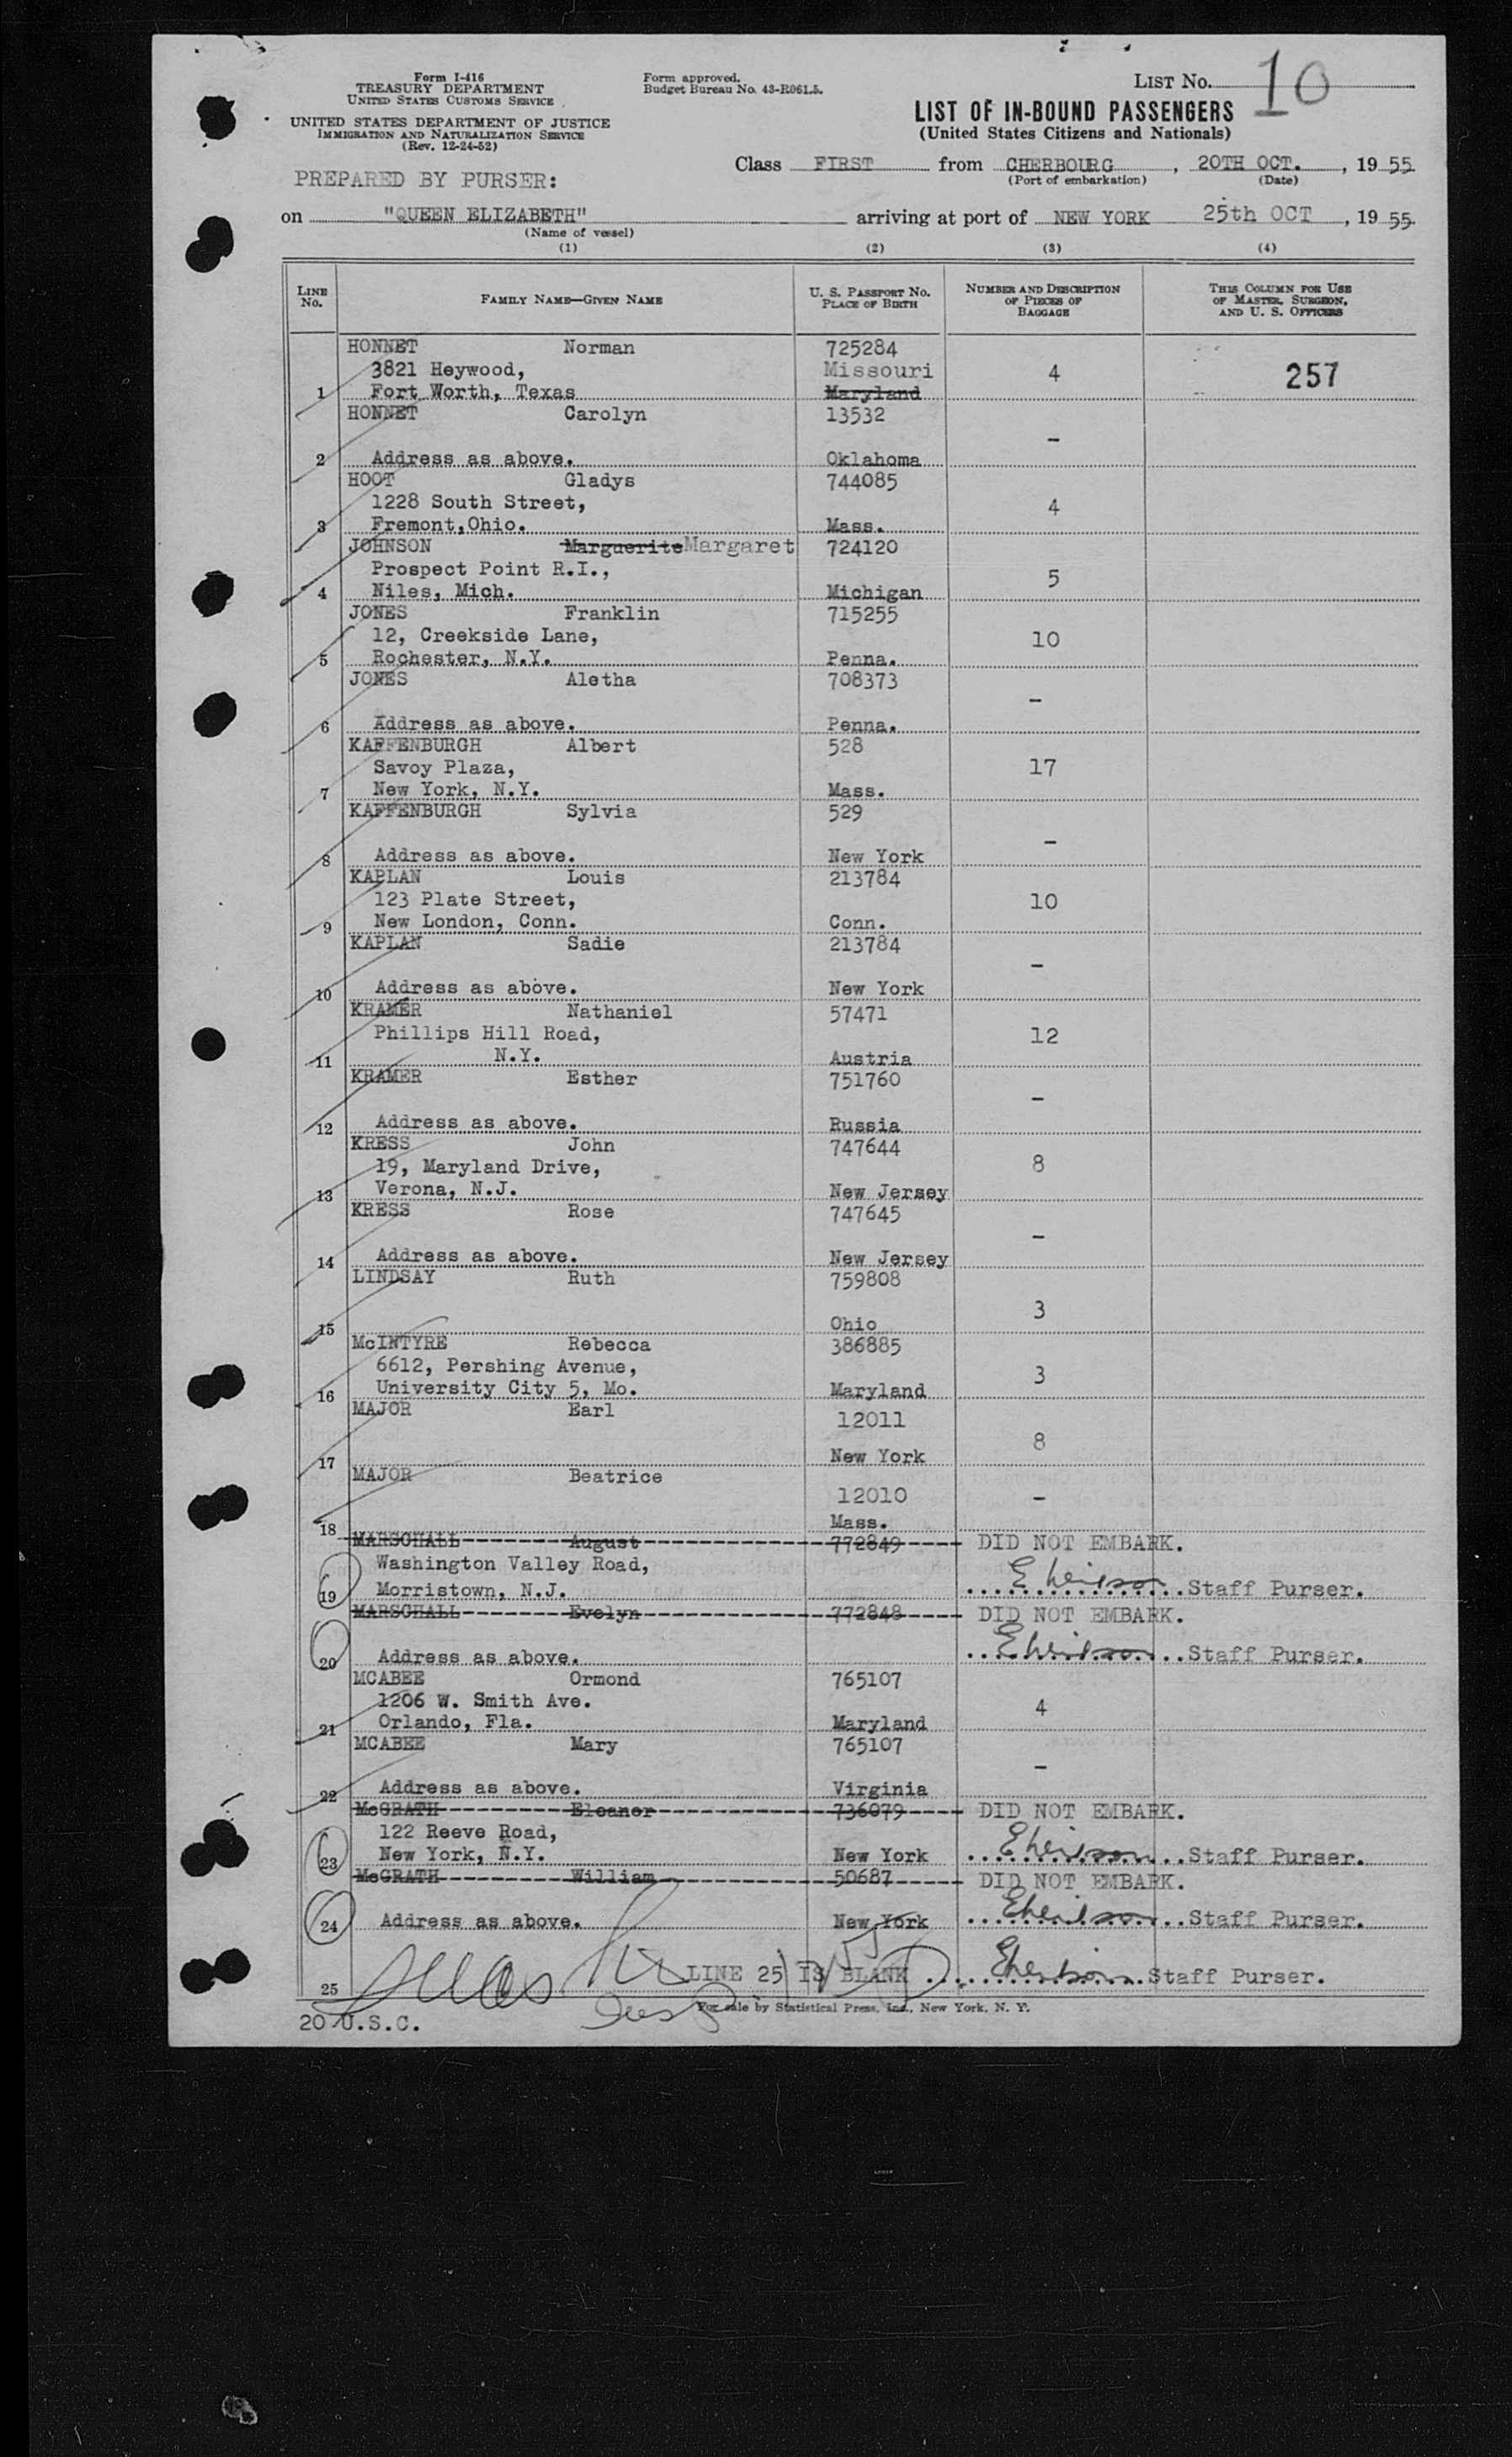 Form I-416
TREASURY DEPARTMENT
UNITED STATES CUSTOMS SERVICE
UNITED STATES DEPARTMENT OF JUSTICE
IMMIGRATION AND NATURALIZATION SERVICE
(Rev. 12-24-52)
Form approved.
Budget Bureau No. 43-R061.5.
LIST No. 10
LIST OF IN-BOUND PASSENGERS
(United States Citizens and Nationals)
Class FIRST from CHERBOURG, 20TH OCT., 1955
(Port of embarkation) (Date)
PREPARED BY PURSER:
on "QUEEN ELIZABETH" arriving at port of NEW YORK 25th OCT, 1955
(Name of vessel)
(1) (2) (3) (4)
LINE No. FAMILY NAME—GIVEN NAME U. S. PASSPORT No. PLACE OF BIRTH NUMBER AND DESCRIPTION OF PIECES OF BAGGAGE THIS COLUMN FOR USE OF MASTER, SURGEON, AND U. S. OFFICERS
HONNET Norman 725284
3821 Heywood, Missouri 4 257
1 Fort Worth, Texas Maryland
HONNET Carolyn 13532
-
2 Address as above. Oklahoma
HOOT Gladys 744085
1228 South Street, 4
3 Fremont,Ohio. Mass.
JOHNSON Marguerite Margaret 724120
Prospect Point R.I., 5
4 Niles, Mich. Michigan
JONES Franklin 715255
12, Creekside Lane, 10
5 Rochester, N.Y. Penna.
JONES Aletha 708373
-
6 Address as above. Penna.
KAFFENBURGH Albert 528
Savoy Plaza, 17
7 New York, N.Y. Mass.
KAFFENBURGH Sylvia 529
-
8 Address as above. New York
KAPLAN Louis 213784
123 Plate Street, 10
9 New London, Conn. Conn.
KAPLAN Sadie 213784
-
10 Address as above. New York
KRAMER Nathaniel 57471
Phillips Hill Road, 12
11 N.Y. Austria
KRAMER Esther 751760
-
12 Address as above. Russia
KRESS John 747644
19, Maryland Drive, 8
13 Verona, N.J. New Jersey
KRESS Rose 747645
-
14 Address as above. New Jersey
LINDSAY Ruth 759808
3
15 Ohio
McINTYRE Rebecca 386885
6612, Pershing Avenue, 3
16 University City 5, Mo. Maryland
MAJOR Earl 12011
8
17 New York
MAJOR Beatrice
12010 -
18 Mass.
MARSCHALL August 772849 DID NOT EMBARK.
Washington Valley Road,
19 Morristown, N.J. Staff Purser.
MARSCHALL Evelyn 772848 DID NOT EMBARK.
20 Address as above. Staff Purser.
MCABEE Ormond 765107
1206 W. Smith Ave. 4
21 Orlando, Fla. Maryland
MCABEE Mary 765107
-
22 Address as above. Virginia
McGRATH Eleanor 736079 DID NOT EMBARK.
122 Reeve Road,
23 New York, N.Y. New York Staff Purser.
McGRATH William 50687 DID NOT EMBARK.
24 Address as above. New York Staff Purser.
25 LINE 25 IS BLANK Staff Purser.
For sale by Statistical Press, Inc., New York, N. Y.
20 U.S.C.